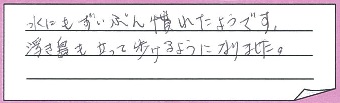 水にもずいぶん慣れたようです。
浮き島も立って歩けるようになりました。